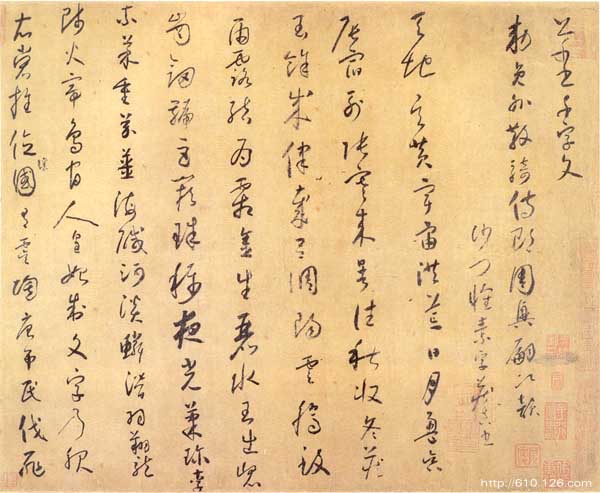 草書千字文
敕員外散騎侍郎周興嗣次韻
沙門懷素字藏真書
天地玄黃宇宙洪荒日月盈昃
辰宿列張寒來暑往秋收冬藏
閏餘成歲律呂調陽雲騰致
雨露結為霜金生麗水玉出崐
崗劍號巨闕珠稱夜光菓珍李
柰菜重芥薑海醎河淡鱗潛羽翔龍
師火帝鳥官人皇始制文字乃服
衣裳推位讓國有虞陶唐弔民伐罪
http://610.126.com/